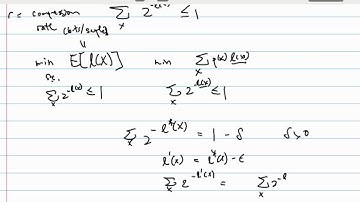 r = compression rate (bits/symbol) ∑_x 2^{-l(x)} ≤ 1
min E[l(X)] min ∑_x p(x) l(x)
∑_x 2^{-l(x)} ≤ 1 ∑_x 2^{-l(x)} ≤ 1
∑_x 2^{-l*(x)} = 1 - δ δ > 0
l'(x) = l*(x) - ε
∑_x 2^{-l'(x)} = ∑_x 2^{-l